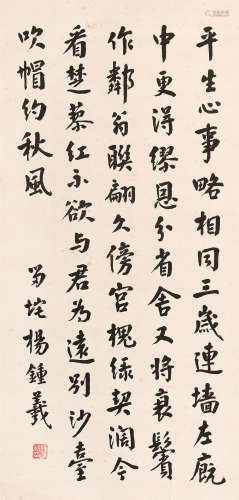 平生心事略相同三歲連墻左廡
中更得繆恩分省舍又將衰鬢
作鄰翁聯翩久傍宮槐綠契闊今
看楚蓼紅不欲与君為遠別沙臺
吹帽約秋風
留垞楊鍾羲